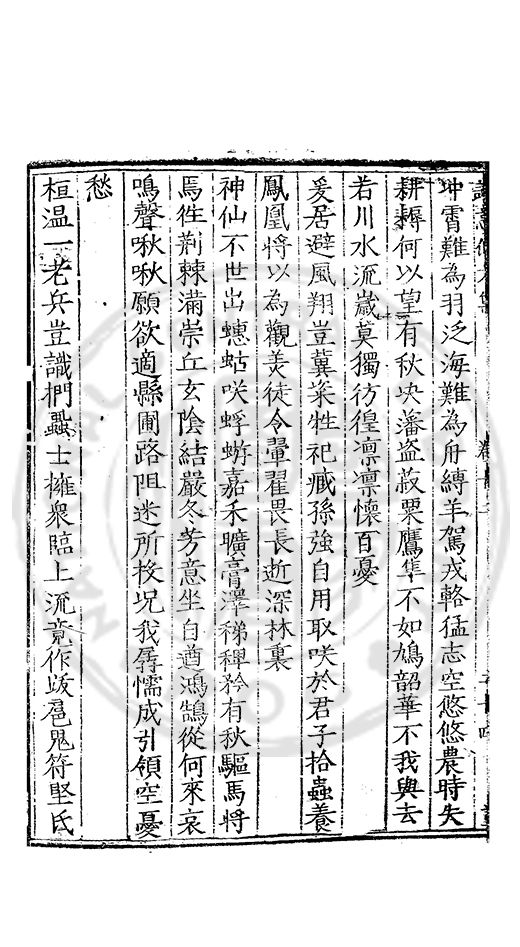 冲霄難為羽泛海難為舟縛羊駕戎輅猛志空悠悠農時失
耕耨何以望有秋央瀋盗菽粟鷹隼不如鳩韶華不我與去
若川水流歲莫獨彷徨凛凛懷百憂
爰居避風翔豈冀桨牲祀臧孫強自用取咲於君子拾蟲養
鳳凰將以為觀羙徒令翬翟畏長逝深林裏
神仙不世出蟪蛄咲蜉蝣嘉禾曠膏澤稊稗矜有秋驅馬將
焉徃荆棘滿崇丘玄陰結嚴冬芳意坐自遒鴻鵠從何來哀
鳴聲啾啾願欲適縣圃路阻迷所投况我孱懦成引領空憂
愁
桓温一老兵豈識捫蝨士擁衆臨上流竟作跋扈鬼符堅氐